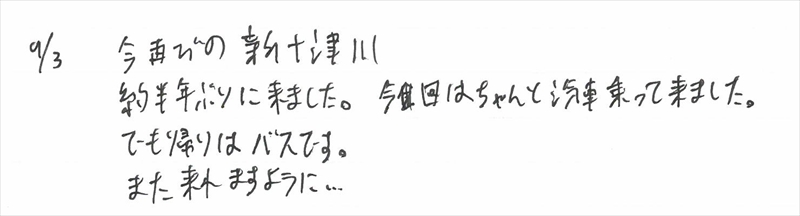 9/3 今再びの新十津川
約半年ぶりに来ました。今回はちゃんと汽車乗って来ました。
でも帰りはバスです。
また来れますように…